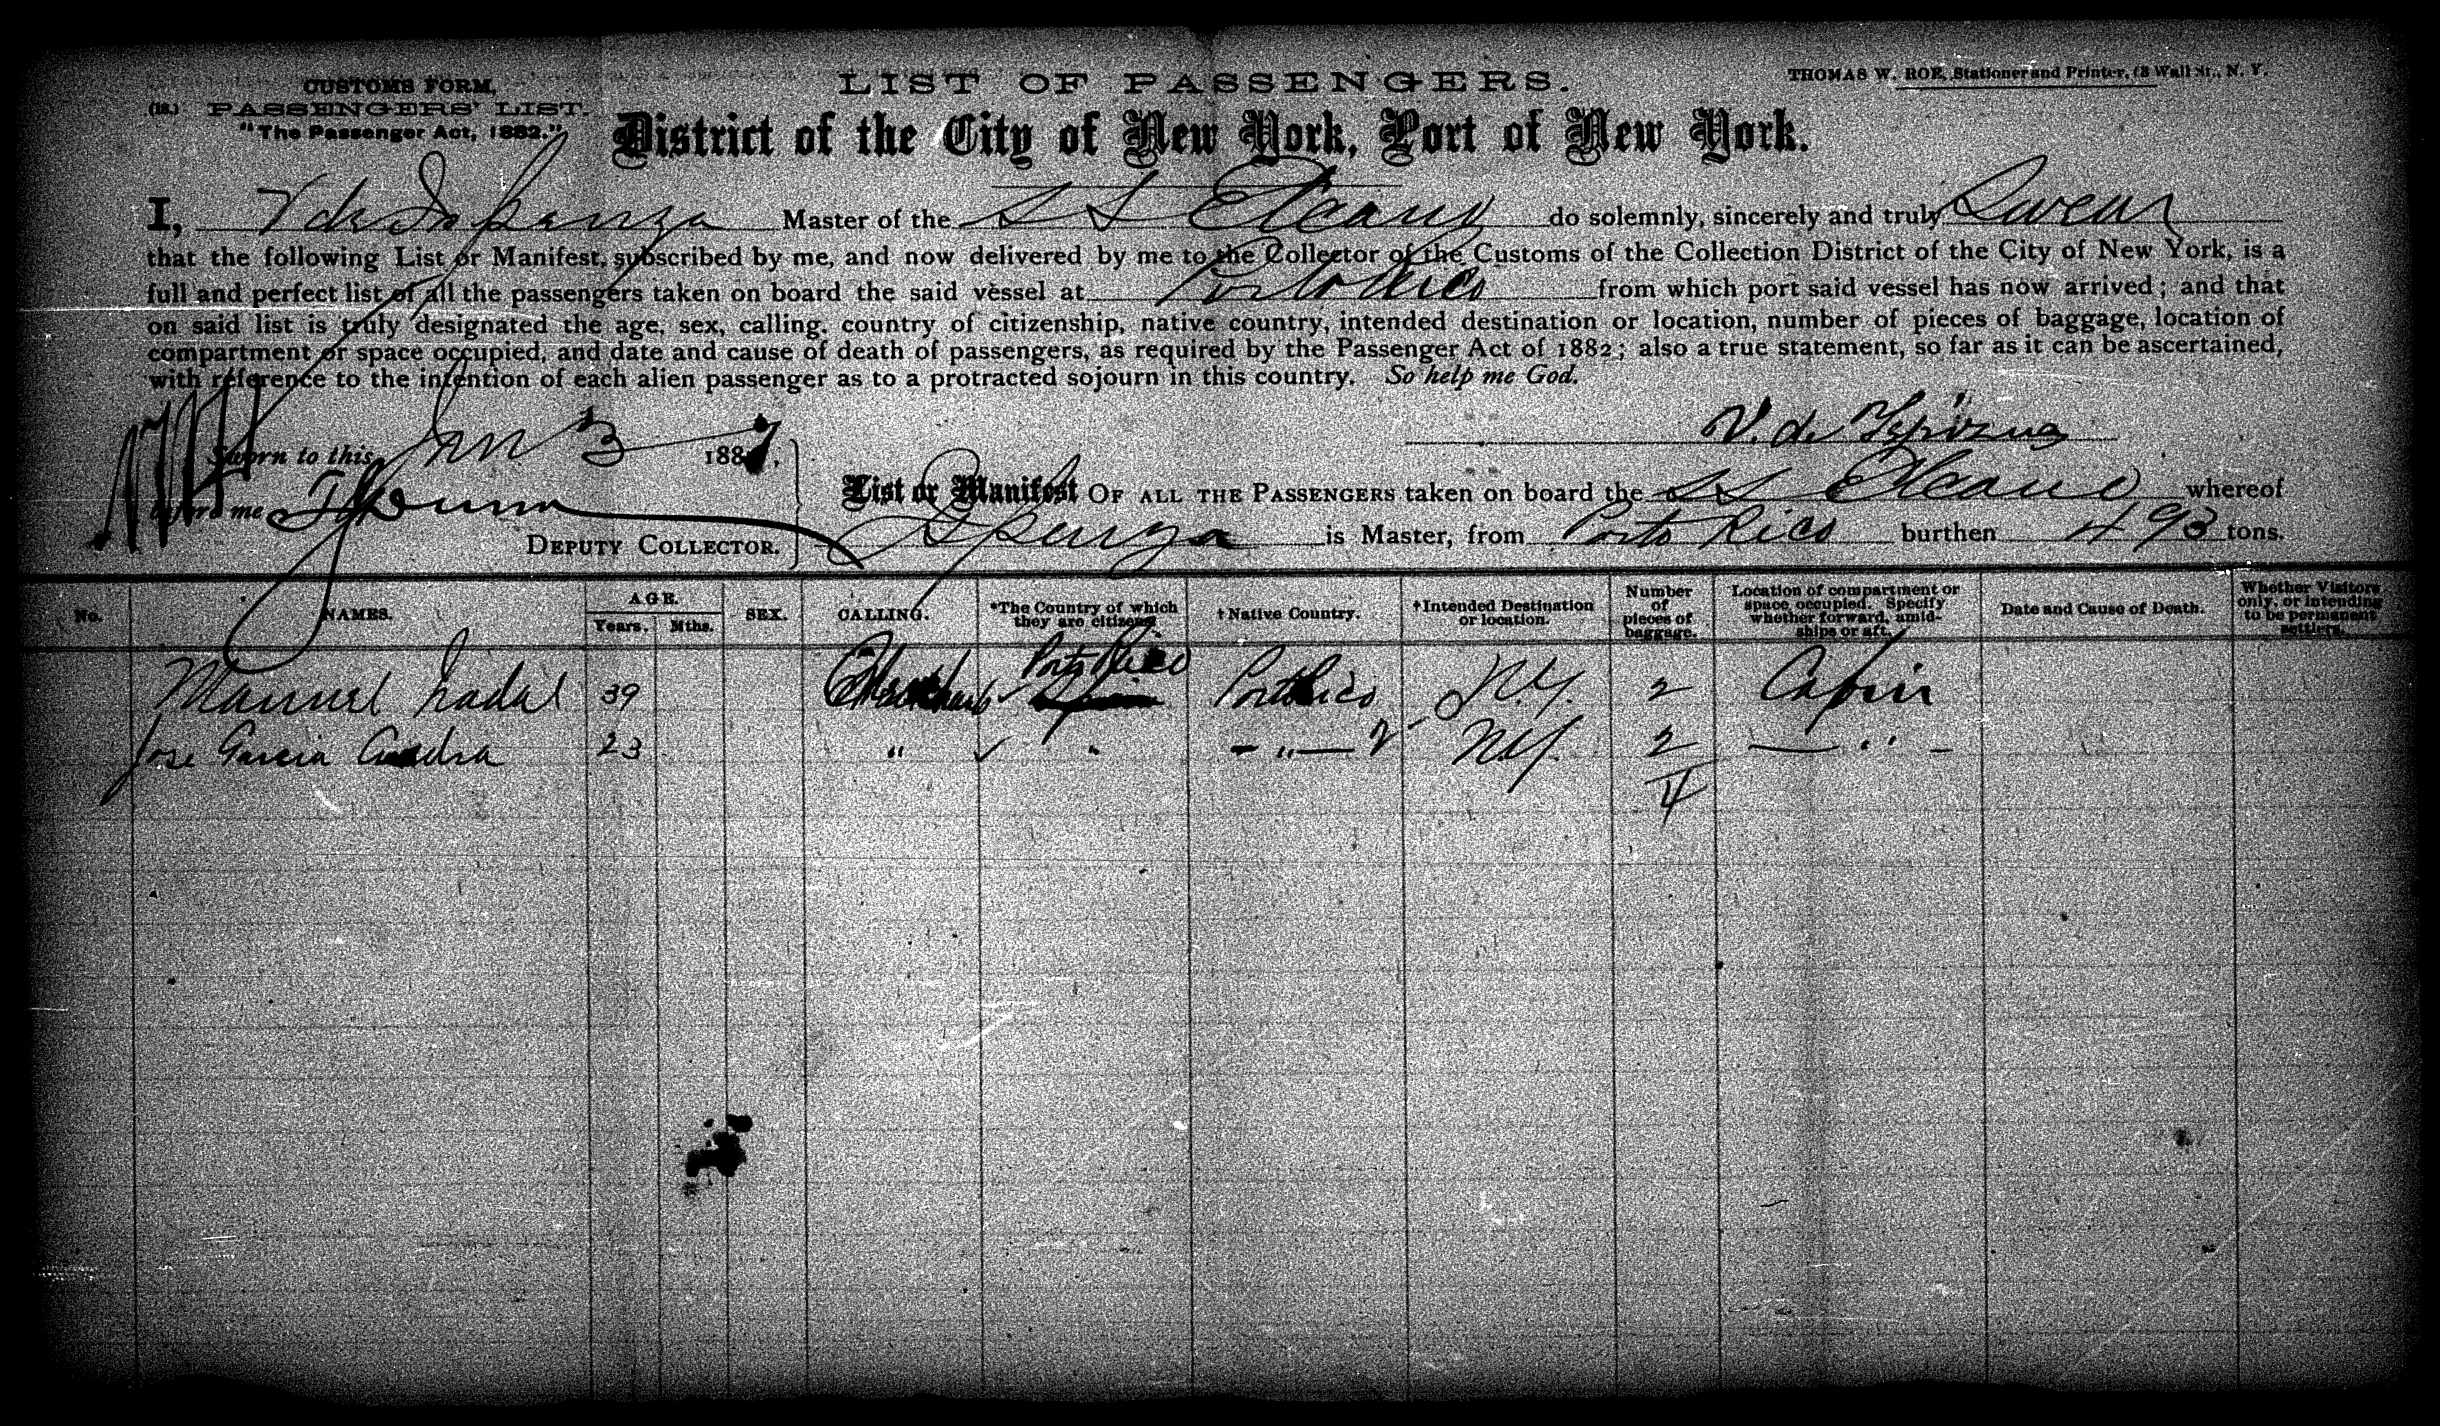 CUSTOMS FORM.
(18.) PASSENGERS' LIST.
"The Passenger Act, 1882."
LIST OF PASSENGERS.
THOMAS W. ROE, Stationer and Printer, 63 Wall St., N. Y.
District of the City of New York, Port of New York.
I, V de Master of the S S Elcano do solemnly, sincerely and truly Swear
that the following List or Manifest, subscribed by me, and now delivered by me to the Collector of the Customs of the Collection District of the City of New York, is a
full and perfect list of all the passengers taken on board the said vessel at Porto Rico from which port said vessel has now arrived; and that
on said list is truly designated the age, sex, calling, country of citizenship, native country, intended destination or location, number of pieces of baggage, location of
compartment or space occupied, and date and cause of death of passengers, as required by the Passenger Act of 1882; also a true statement, so far as it can be ascertained,
with reference to the intention of each alien passenger as to a protracted sojourn in this country. So help me God.
V. de
Sworn to this Jan 3 1887,
before me
DEPUTY COLLECTOR.
List or Manifest OF ALL THE PASSENGERS taken on board the S S Elcano whereof
is Master, from Porto Rico burthen 493 tons.
No. NAMES. AGE. Years. Mths. SEX. CALLING. *The Country of which they are citizens. †Native Country. †Intended Destination or location. Number of pieces of baggage. Location of compartment or space occupied. Specify whether forward, amidships or aft. Date and Cause of Death. Whether Visitors only, or intending to be permanent settlers.
Manuel Nadal 39 Merchant Porto Rico Porto Rico N.Y. 2 Cabin
Jose Garcia Cuadra 23 " " — " — 2 N.Y. 2 — " —
4